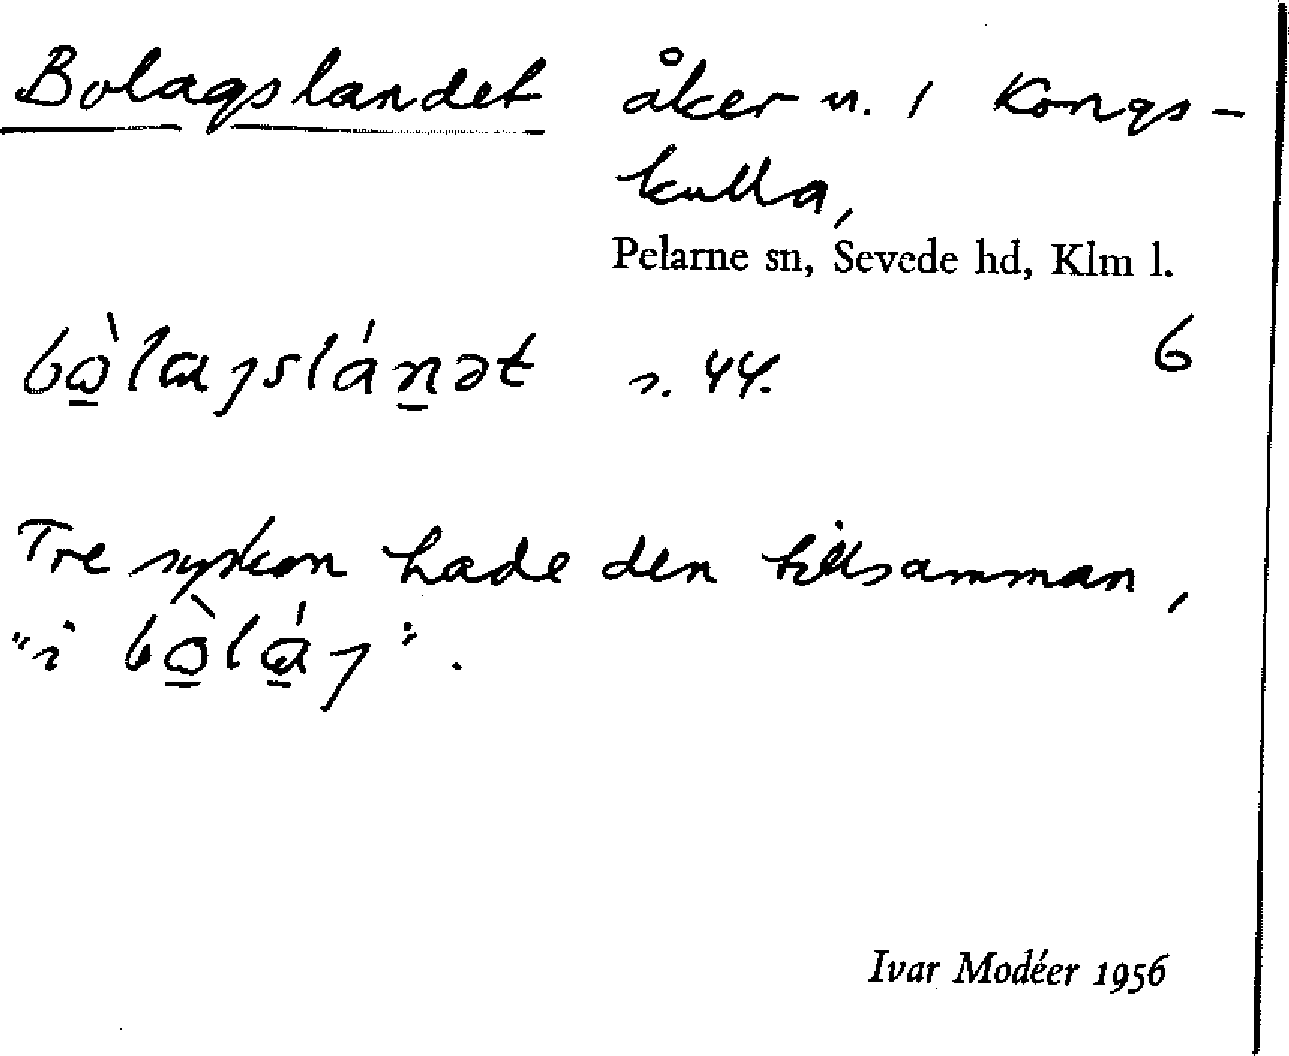 Bolagslandet åker n. 1 Kongs-
kulla,
Pelarne sn, Sevede hd, Klm l.
bò̱lɑȷsláṉət s. 44. 6
Tre syskon hade den tillsamman,
"i bò̱lɑ̱́ȷ".
Ivar Modéer 1956